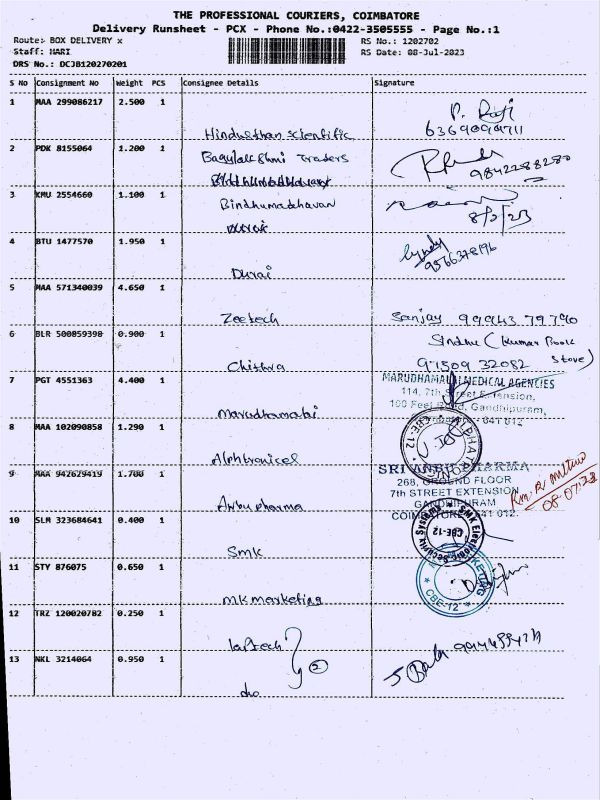 THE PROFESSIONAL COURIERS, COIMBATORE
Delivery Runsheet - PCX - Phone No.:0422-3505555 - Page No.:1
Route: BOX DELIVERY x
RS No.: 1202702
Staff: HARI
RS Date: 08-Jul-2023
DRS No.: DCJB120270201
S No Consignment No Weight PCS Consignee Details Signature
1 MAA 299086217 2.500 1
Hindusthan scientific
2 PDK 8155064 1.200 1
Traders
9842288280
3 KMU 2554660 1.100 1
Bindhumadhavan
8/7/23
4 BTU 1477570 1.950 1
Durai
5 MAA 571340039 4.650 1
Zeetech Sanjay 99943 79790
6 BLR 500859398 0.900 1
Sindhu (Kumar Book Store)
Chithra 97509 32082
7 PGT 4551363 4.400 1
MARUDHAMALAI MEDICAL AGENCIES
114, 7th Street Extension,
100 Feet Road, Gandhipuram,
Marudhamalai
8 MAA 102090858 1.290 1
CBE-12
Alphtronices
9 MAA 942629419 1.700 1
SRI ANBU PHARMA
268, GROUND FLOOR
7th STREET EXTENSION
GANDHIPURAM
COIMBATORE - 641 012.
Anbu pharma
10 SLM 323684641 0.400 1
SMK Electronic Security System
CBE-12
SMK
11 STY 876075 0.650 1
CBE-12
MK marketing
12 TRZ 120020782 0.250 1
13 NKL 3214064 0.950 1
2
do